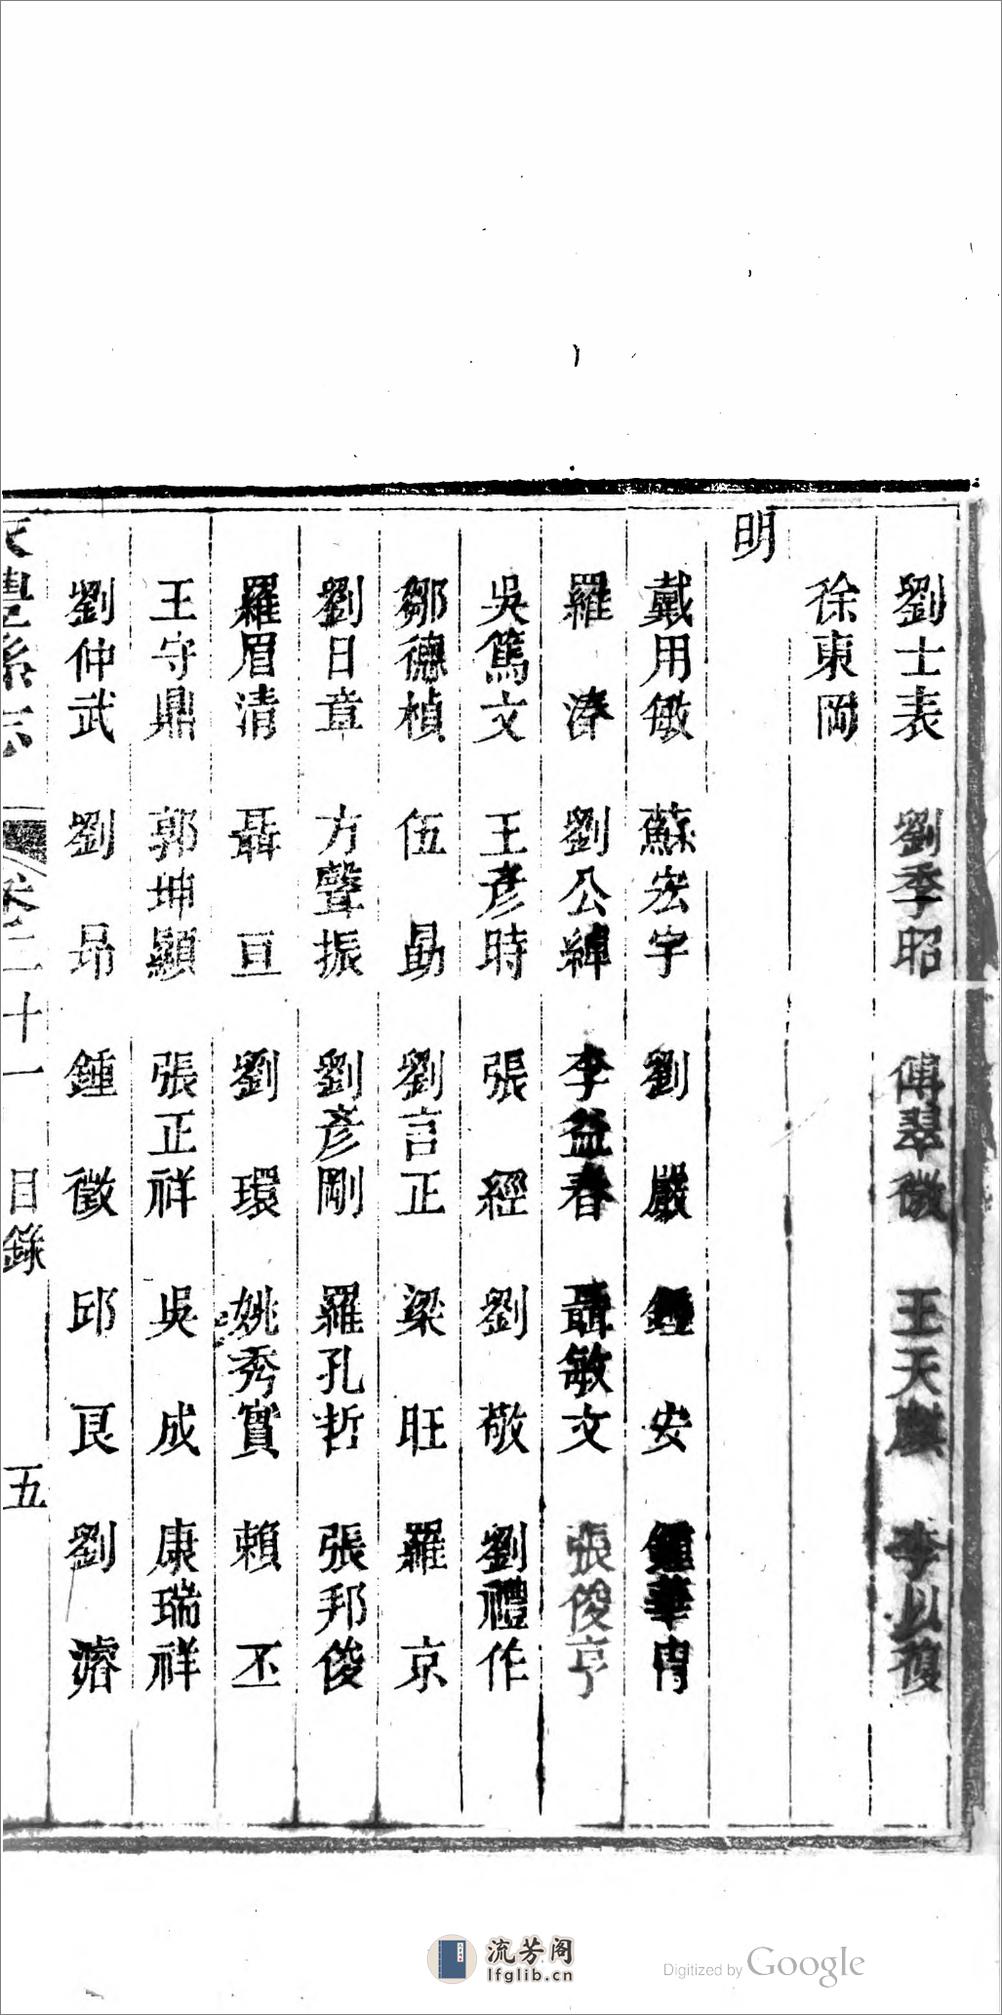 劉士表　劉季昭　傅翠微　王天麒　李以復
徐東岡
明
戴用敏　蘇宏宇　劉　嚴　鍾　安　鍾華胄
羅　濬　劉公緯　李益春　聶敏文　張俊亨
吳篤文　王彥時　張　經　劉　敬　劉禮作
鄒德楨　伍　勗　劉言正　梁　旺　羅　京
劉日章　方聲振　劉彥剛　羅孔哲　張邦俊
羅眉清　聶　亘　劉　環　姚秀實　賴　丕
王守鼎　郭坤顯　張正祥　吳　成　康瑞祥
劉仲武　劉　昂　鍾　徵　邱　良　劉　濬
永豐縣志　卷二十一　目錄　五
流芳阁
lfglib.cn
Digitized by Google